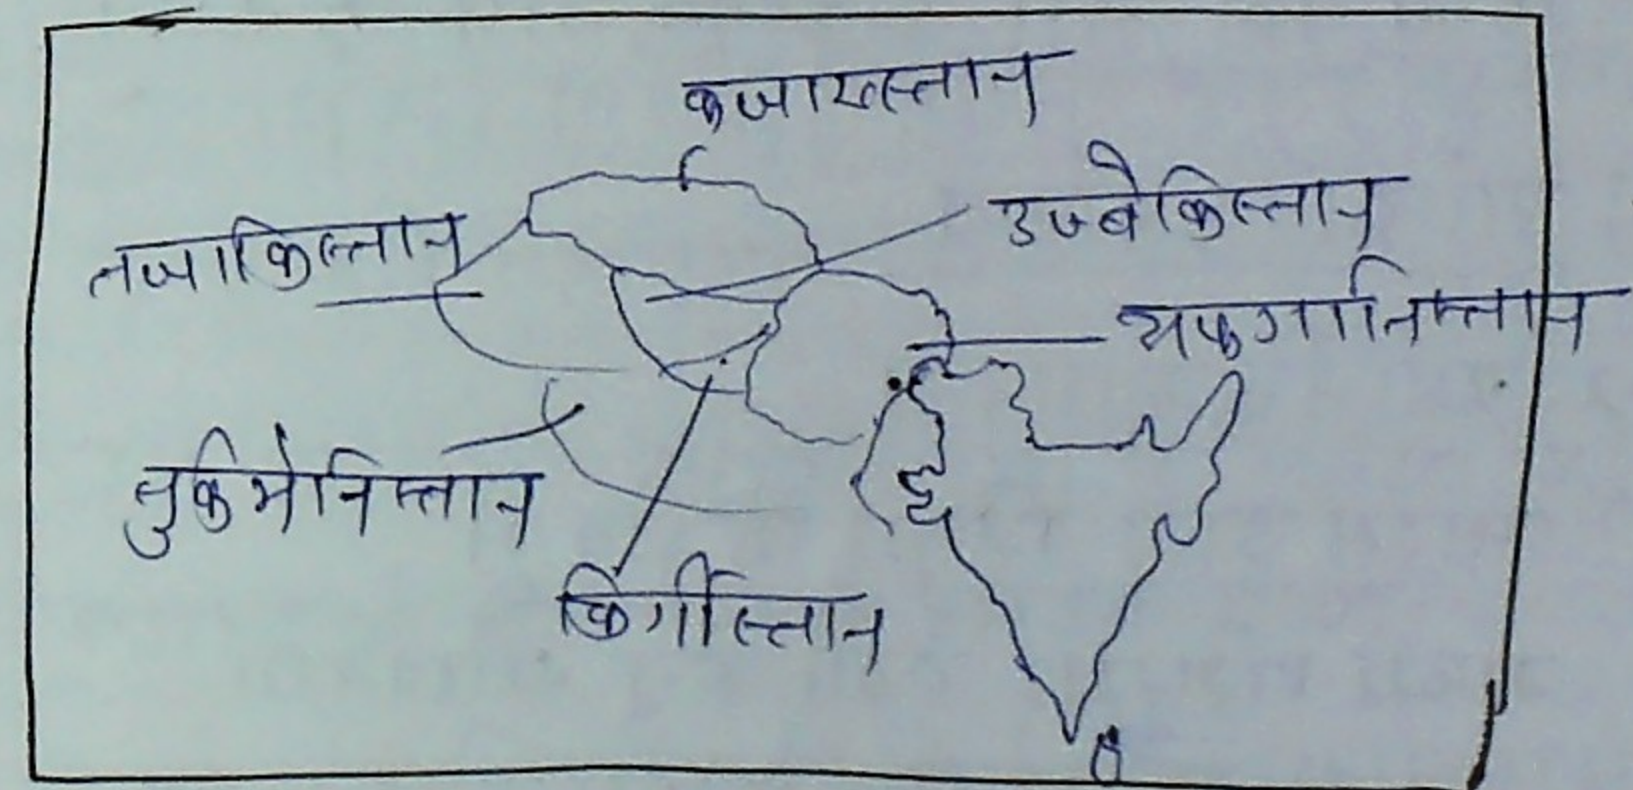 कजाखस्तान
उज्बेकिस्तान
तजाकिस्तान
अफगानिस्तान
तुर्कमेनिस्तान
किर्गीस्तान